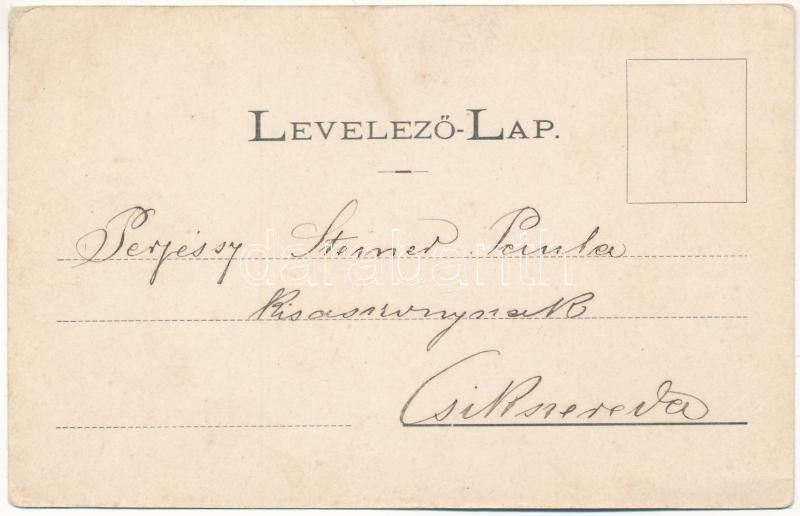 LEVELEZŐ-LAP.
Perjéssy Steiner Paula
kisasszonynak
Csikszereda
darabanth